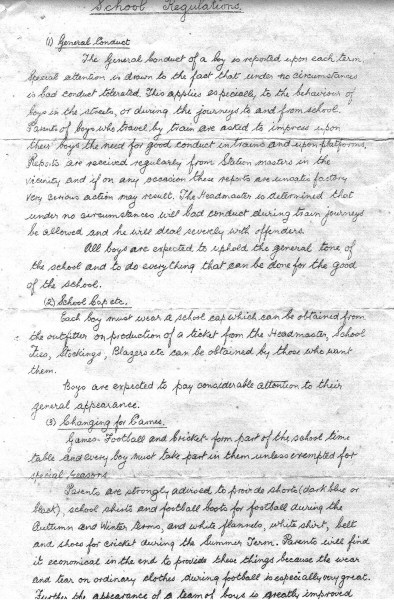 School Regulations.
(1) General Conduct
The General Conduct of a boy is reported upon each term
Special attention is drawn to the fact that under no circumstances
is bad conduct tolerated. This applies especially to the behaviour of
boys in the streets, or during the journeys to and from school.
Parents of boys who travel by train are asked to impress upon
their boys the need for good conduct in trains and upon platforms.
Reports are received regularly from Station masters in the
vicinity and if on any occasion these reports are unsatisfactory
very serious action may result. The Headmaster is determined that
under no circumstances will bad conduct during train journeys
be allowed and he will deal severely with offenders.
All boys are expected to uphold the general tone of
the school and to do everything that can be done for the good
of the school.
(2) School Cap etc.
Each boy must wear a school cap which can be obtained from
the outfitter on production of a ticket from the Headmaster, School
Ties, Stockings, Blazers etc can be obtained by those who want
them.
Boys are expected to pay considerable attention to their
general appearance.
(3) Changing for Games.
Games - Football and Cricket - form part of the school time
table and every boy must take part in them unless exempted for
special reasons
Parents are strongly advised to provide shorts (dark blue or
black), school shirts and football boots for football during the
Autumn and Winter terms, and white flannels, white shirt, belt
and shoes for cricket during the Summer Term. Parents will find
it economical in the end to provide these things because the wear
and tear on ordinary clothes during football is especially very great.
Further the appearance of a team of boys is greatly improved